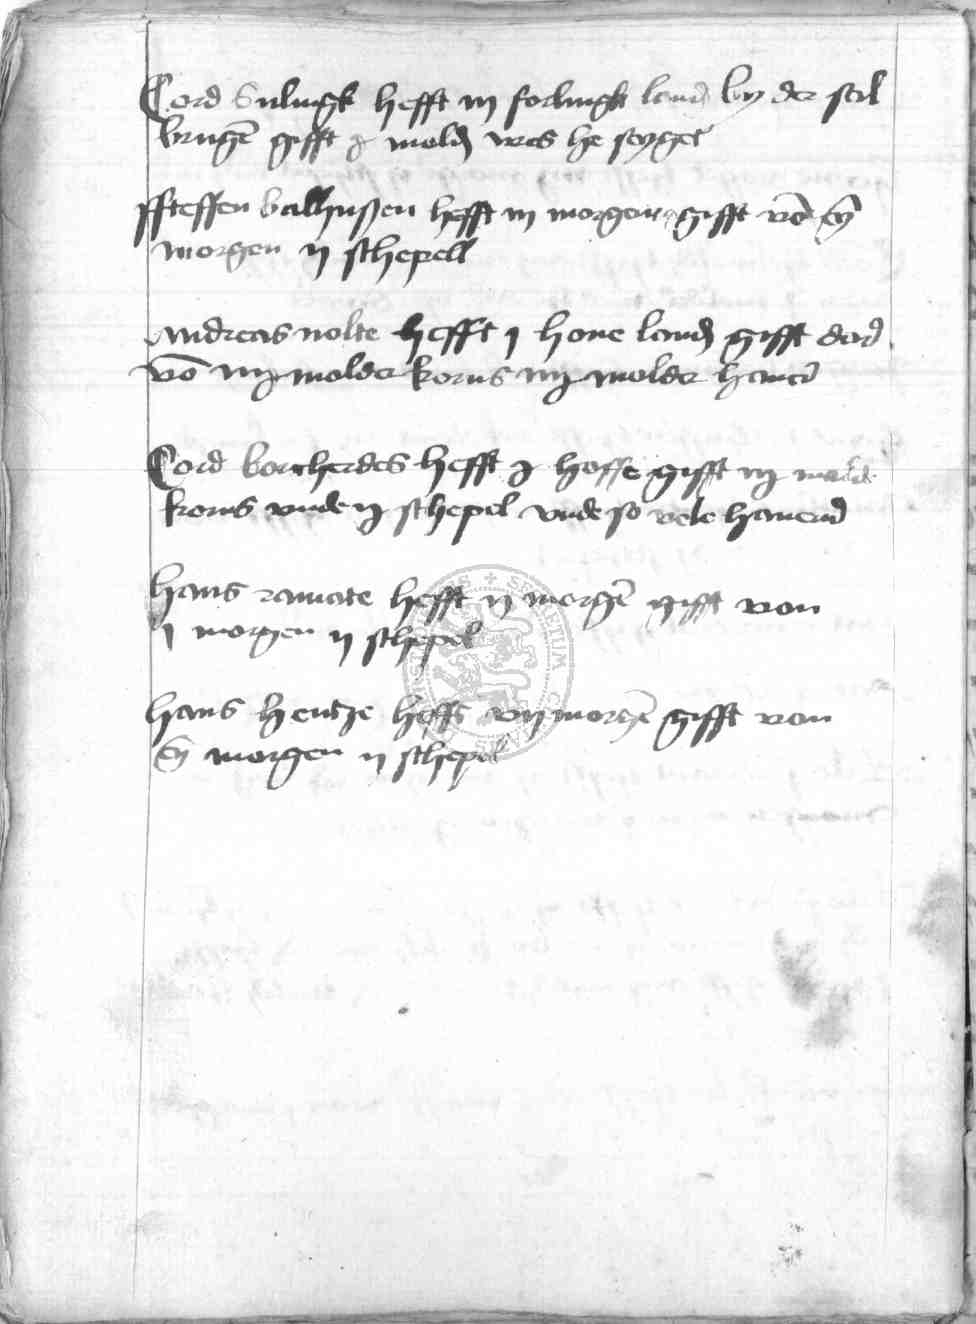 Cord hefft iij forlingk land by der stel
brugē gifft j mold wes he seyget
Steffen balhusen hefft iij morgen gifft vō eȳ
morgen ij schepell
Andreas nolte hefft j hove land gifft dar
vō iiij molder korns iiij molder haver
Cord borcherdes hefft j hoffe gifft iij molder
korns unde ij schepel unde so vele haveren
hans ramate hefft ij morgē gifft von
j morgen ij schepel
hans hentze hefft vij morgē gifft von
eȳ morgen ij schepel